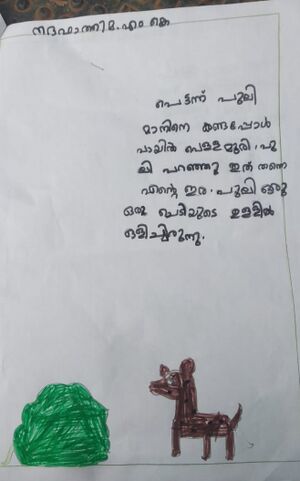 നദഫാത്തിമ.എം കെ
പെട്ടന്ന് പുലി
മാനിനെ കണ്ടപ്പോൾ
വായിൽ വെള്ളമൂറി. പു
ലി പറഞ്ഞു ഇത് തന്നെ
എന്റെ ഇര. പുലി
ഒരു ചെടിയുടെ ഉള്ളിൽ
ഒളിച്ചിരുന്നു.